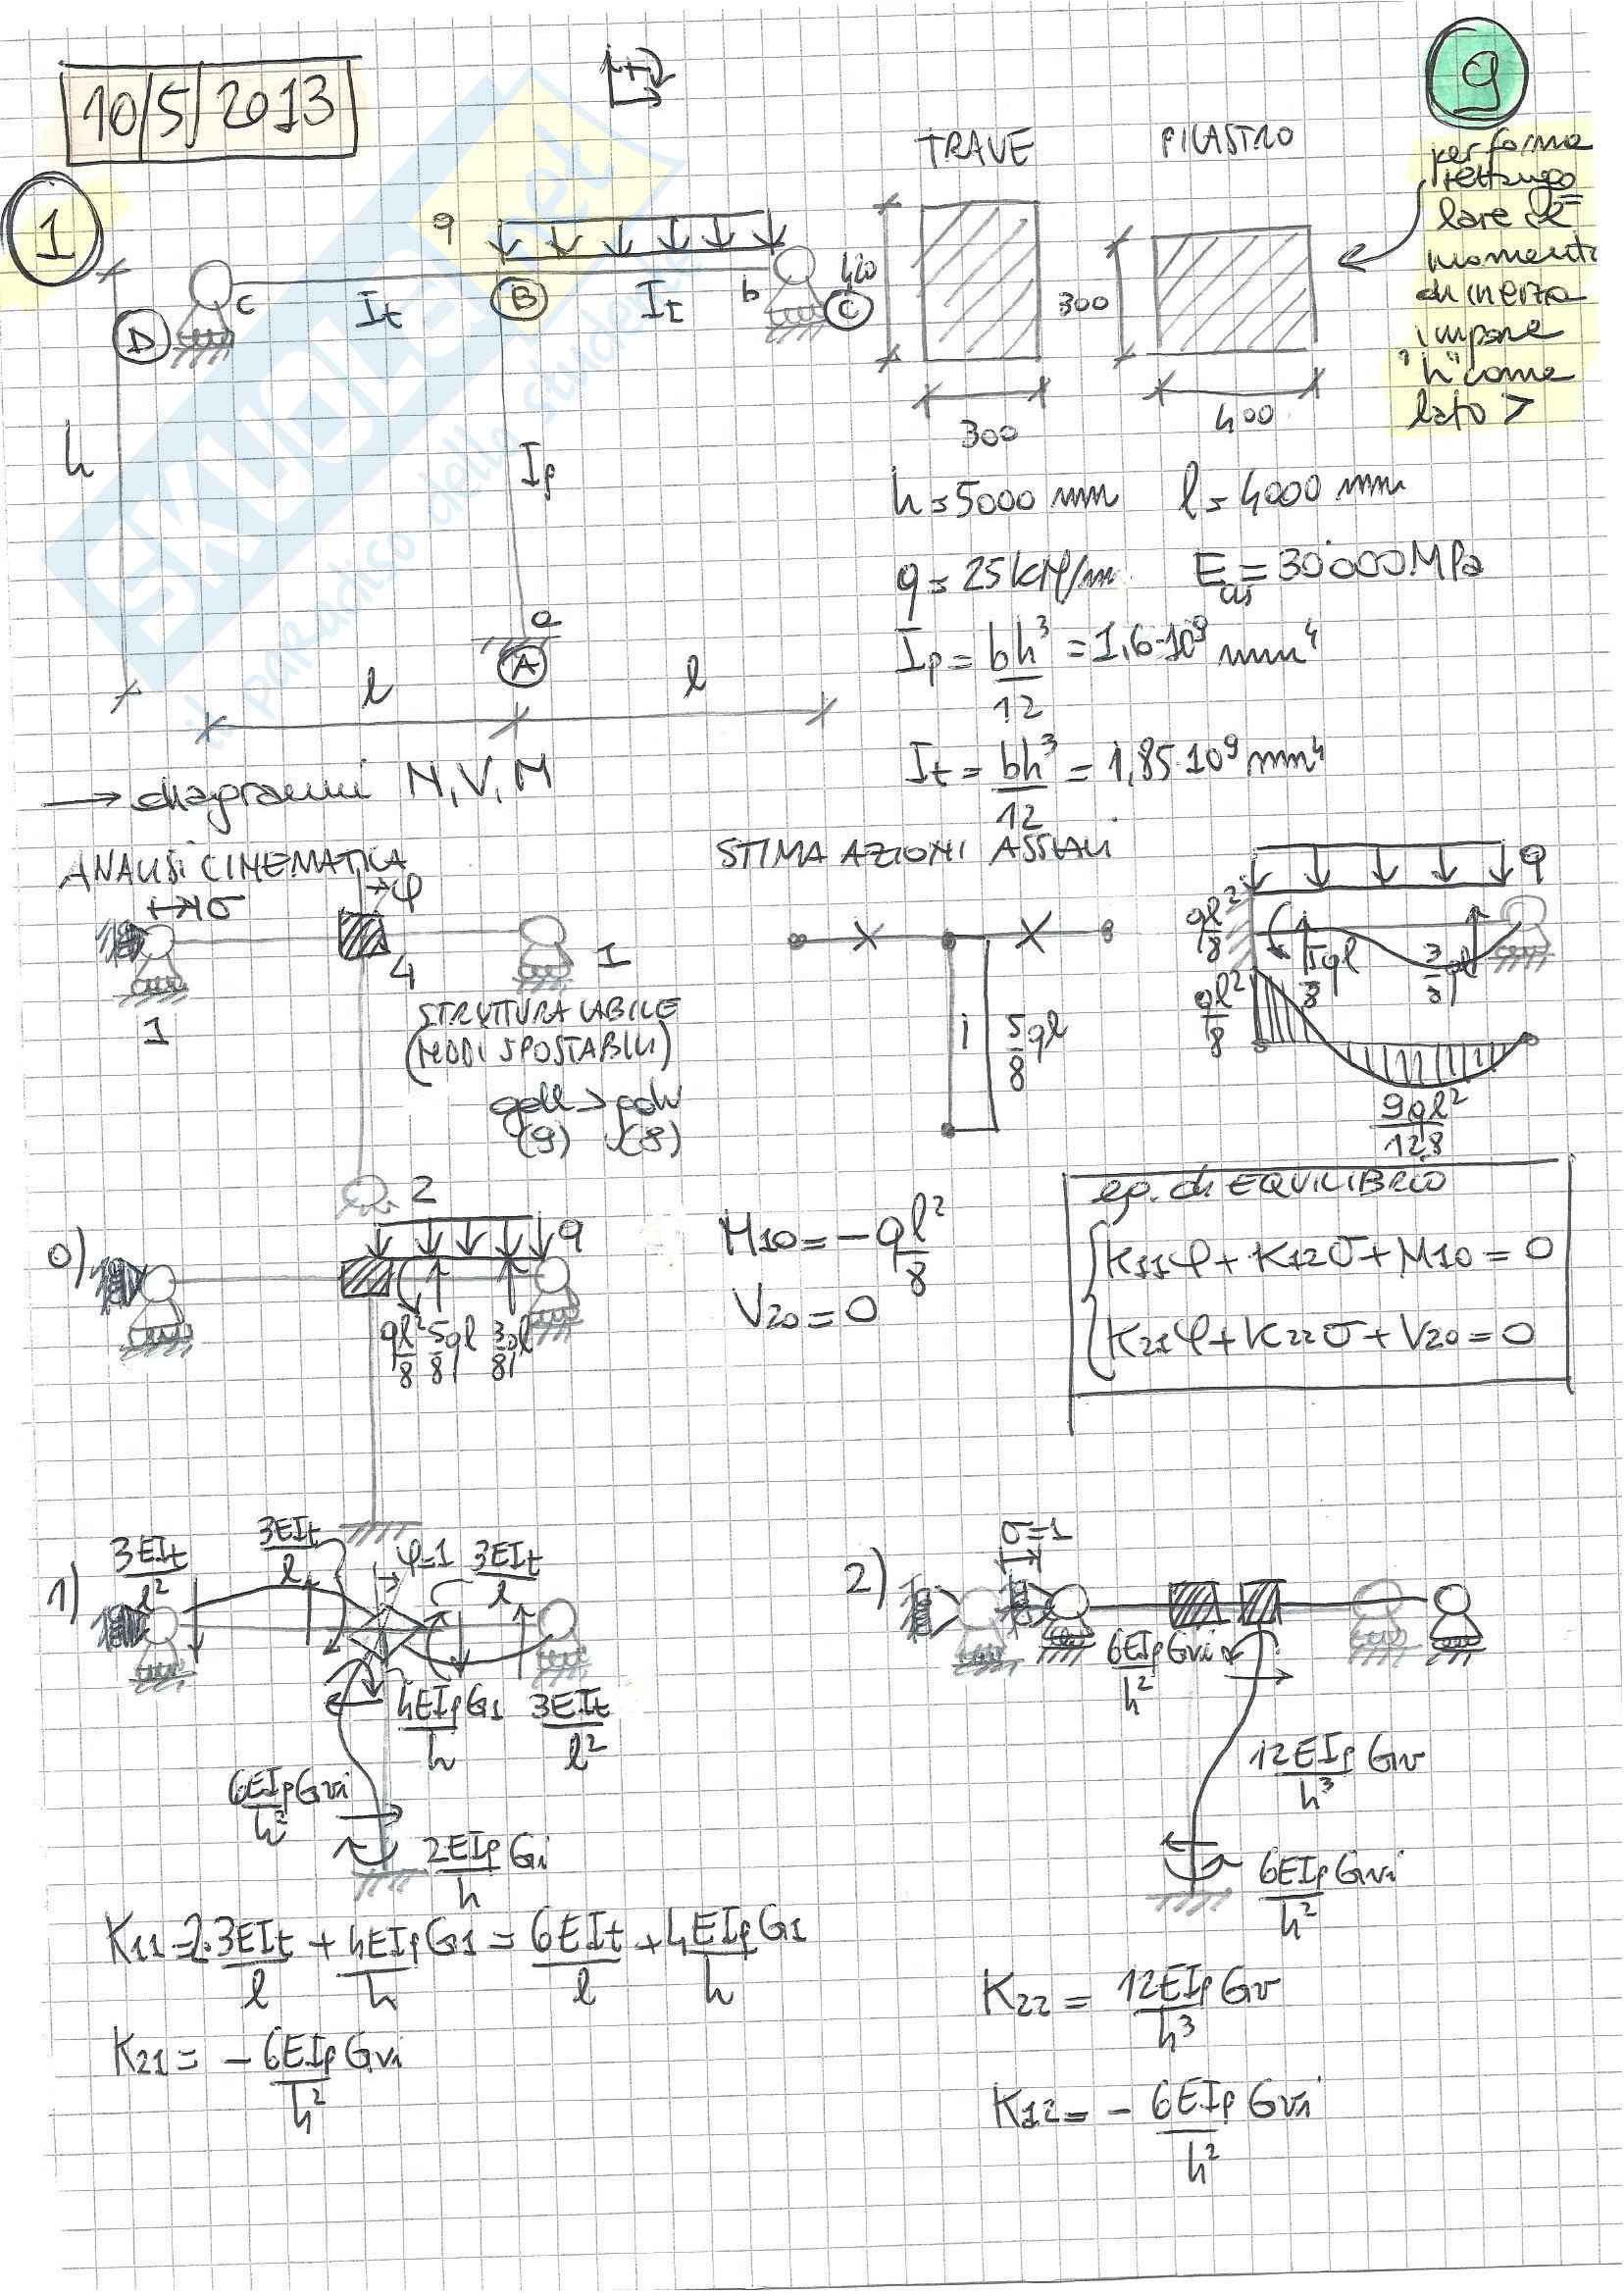 10/5/2013
9
1
TRAVE
PILASTRO
per forma
rettango
lare il
momento
di inerzia
impone
"h" come
lato >
q
420
300
300
400
D
c
It
B
It
b
C
h
Ip
a
A
l
l
h = 5000 mm l = 4000 mm
q = 25 kN/m E = 30'000 MPa
Ip = bh³/12 = 1,6·10⁹ mm⁴
It = bh³/12 = 1,85·10⁹ mm⁴
→ diagrammi N, V, M
ANALISI CINEMATICA
STIMA AZIONI ASSIALI
σ
φ
1
4
1
STRUTTURA LABILE
(NODI SPOSTABILI)
gdl > gdv
(9) (8)
2
5/8 ql
q
ql²/8
5/8 ql
3/8 ql
ql²/8
9ql²/128
0)
q
ql²/8 5/8 ql 3/8 ql
M10 = - ql²/8
V20 = 0
eq. di EQUILIBRIO
K11φ + K12σ + M10 = 0
K21φ + K22σ + V20 = 0
1)
3EIt/l²
3EIt/l
φ=1
3EIt/l
4EIp G1/h
3EIt/l²
6EIp Gvi/h²
2EIp Gi/h
2)
σ=1
6EIp Gvi/h²
12EIp Gv/h³
6EIp Gvi/h²
K11 = 2·3EIt/l + 4EIp G1/h = 6EIt/l + 4EIp G1/h
K21 = - 6EIp Gvi/h²
K22 = 12EIp Gv/h³
K12 = - 6EIp Gvi/h²
SKUOLA.net
il paradiso dello studente